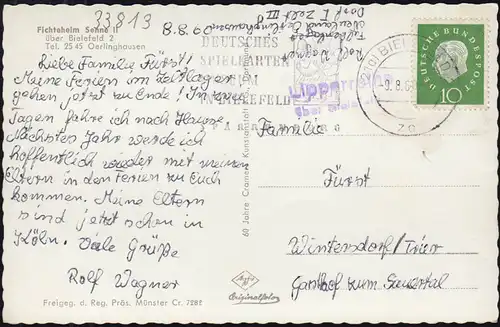 33813
Fichtelheim Senne II
über Bielefeld 2
Tel. 2545 Oerlinghausen
8.8.60
Liebe Familie Fürst!
Meine Ferien im Zeltlager
gehen jetzt zu Ende! In zwei
Tagen fahre ich nach Hause.
Nächstes Jahr werde ich
hoffentlich wieder mit meinen
Eltern in den Ferien zu Euch
kommen. Meine Eltern
sind jetzt schon in
Köln. Viele Grüße
Rolf Wagner
Freigeg. d. Reg. Präs. Münster Cr. 7282
60 Jahre Cramers Kunstanstalt
Agfa
Originalfoto
Rolf Wagner
Dorf I Zelt III
DEUTSCHES
SPIELKARTEN
BIELEFELD
Lipp
über
BIEL
DEUTSCHE BUNDESPOST
10
Familie
Fürst
Wintersdorf/Trier
Gasthof zum Sauertal